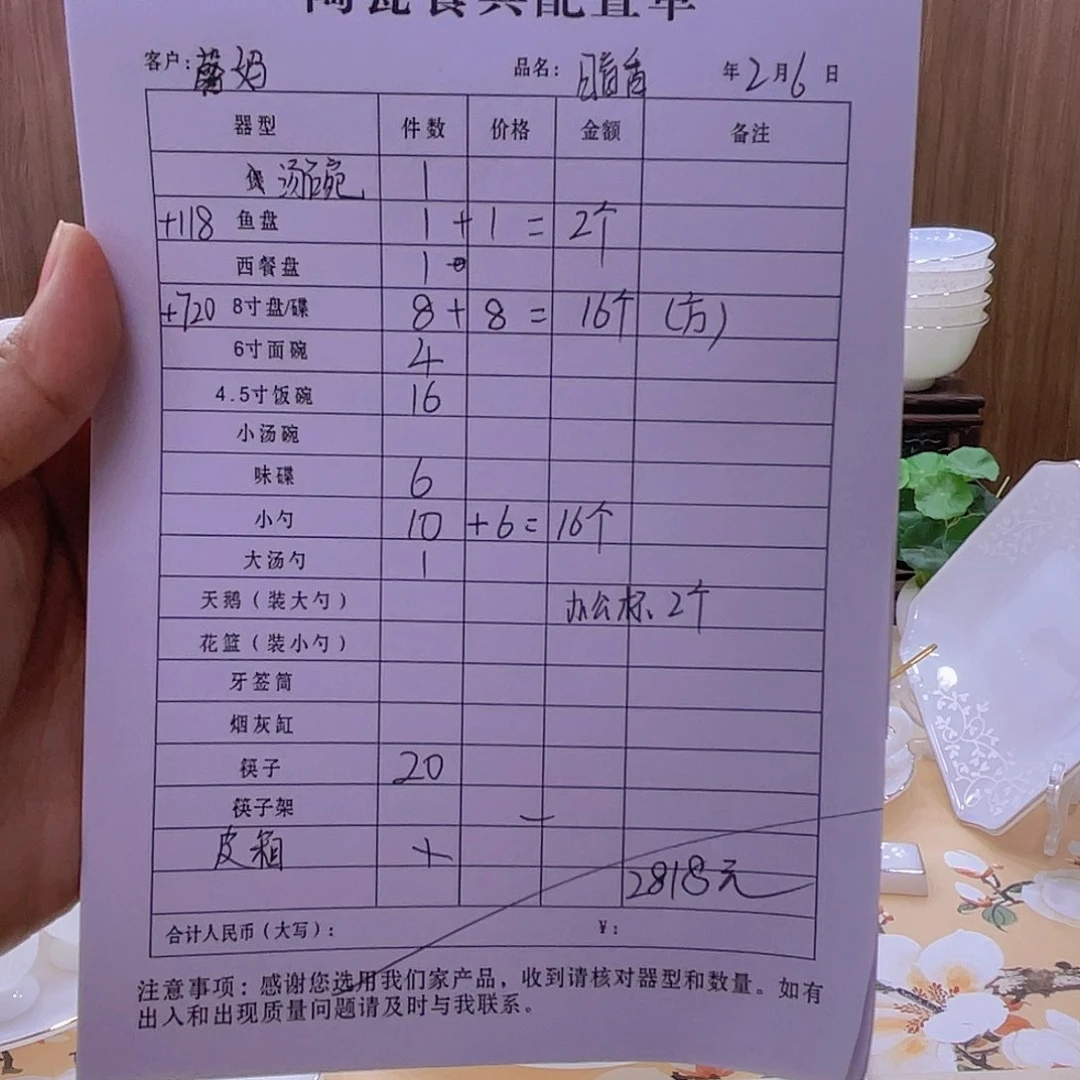 陶瓷餐具配置单
客户: 妈 品名: 脂香 年2月6日
器型 件数 价格 金额 备注
汤碗 1
+118 鱼盘 1 + 1 = 2个
西餐盘 1
+720 8寸盘/碟 8 + 8 = 16个 (方)
6寸面碗 4
4.5寸饭碗 16
小汤碗
味碟 6
小勺 10 +6= 16个
大汤勺 1
天鹅(装大勺) 办公杯 2个
花篮(装小勺)
牙签筒
烟灰缸
筷子 20
筷子架
皮箱
2818元
合计人民币(大写): ¥:
注意事项: 感谢您选用我们家产品, 收到请核对器型和数量。如有
出入和出现质量问题请及时与我联系。